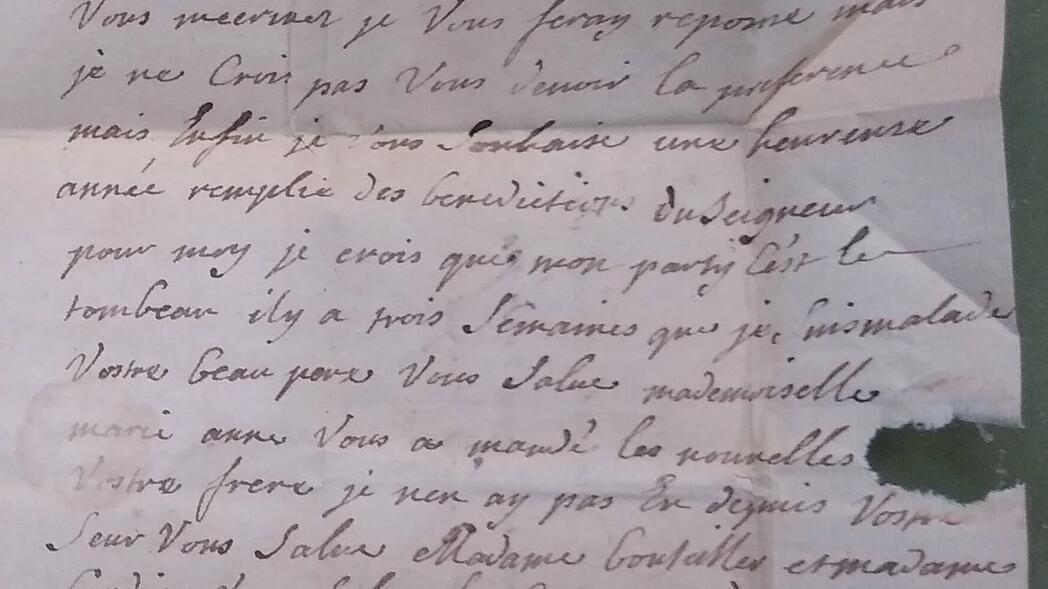 Vous mecrivez je Vous feray reponse mais
je ne Crois pas Vous devoir la preference
mais Enfin je Vous Souhaise une heureuse
année remplie des benedictions du Seigneur
pour moy je crois que mon party C'est le
tombeau il y a trois Semaines que je Suis malade
Vostre beau pere Vous Salue mademoiselle
marie anne Vous a mandé les nouvelles
Vostre frere je nen ay pas Eu depuis Vostre
Seur Vous Salue Madame et madame